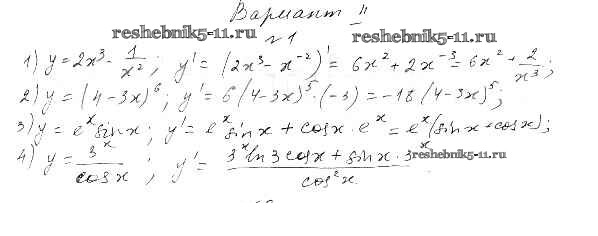 Вариант II
reshebnik5-11.ru reshebnik5-11.ru
№1
1) y = 2x³ - 1/x²; y' = (2x³ - x⁻²)' = 6x² + 2x⁻³ = 6x² + 2/x³;
2) y = (4-3x)⁶; y' = 6(4-3x)⁵·(-3) = -18(4-3x)⁵;
3) y = eˣ sin x; y' = eˣ sin x + cos x · eˣ = eˣ(sin x + cos x);
4) y = 3ˣ/cos x; y' = (3ˣ ln 3 cos x + sin x · 3ˣ)/cos² x
reshebnik5-11.ru